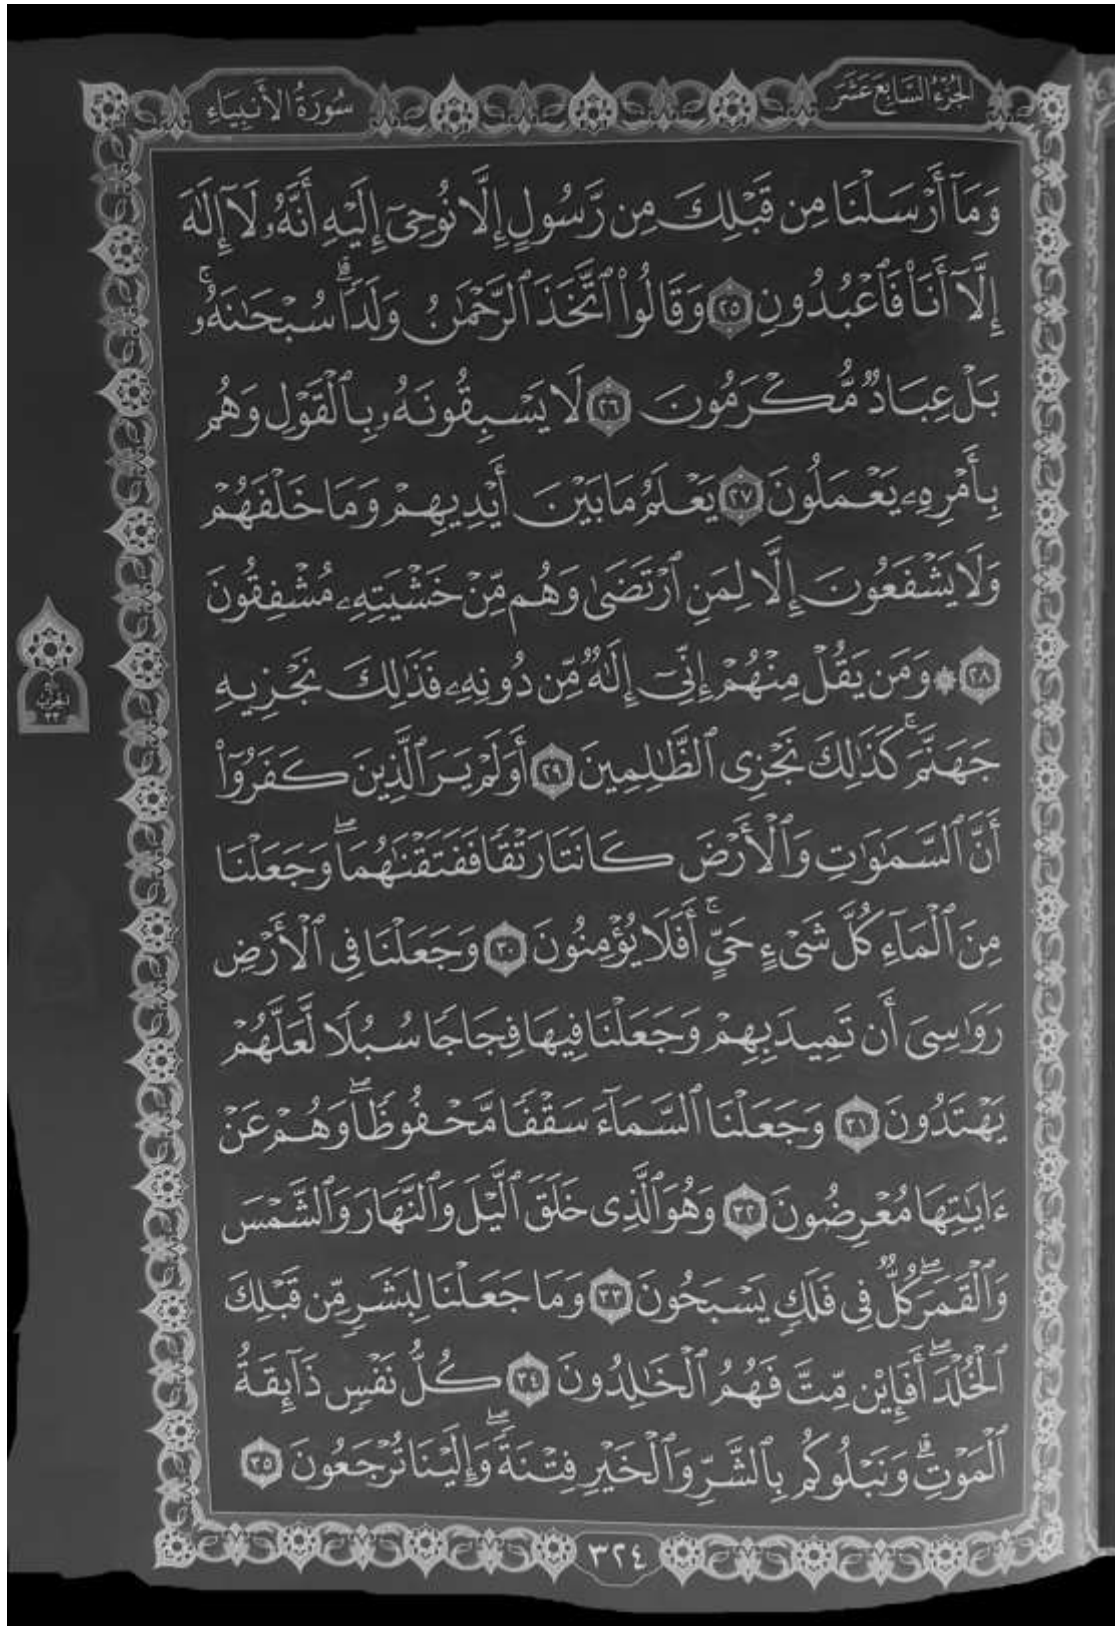 الجزء السابع عشر
سورة الأنبياء
وَمَآ أَرْسَلْنَا مِن قَبْلِكَ مِن رَّسُولٍ إِلَّا نُوحِىٓ إِلَيْهِ أَنَّهُۥ لَآ إِلَٰهَ
إِلَّآ أَنَا۠ فَٱعْبُدُونِ ٢٥ وَقَالُوا۟ ٱتَّخَذَ ٱلرَّحْمَٰنُ وَلَدًا ۗ سُبْحَٰنَهُۥ ۚ
بَلْ عِبَادٌ مُّكْرَمُونَ ٢٦ لَا يَسْبِقُونَهُۥ بِٱلْقَوْلِ وَهُم
بِأَمْرِهِۦ يَعْمَلُونَ ٢٧ يَعْلَمُ مَا بَيْنَ أَيْدِيهِمْ وَمَا خَلْفَهُمْ
وَلَا يَشْفَعُونَ إِلَّا لِمَنِ ٱرْتَضَىٰ وَهُم مِّنْ خَشْيَتِهِۦ مُشْفِقُونَ
٢٨ ۞ وَمَن يَقُلْ مِنْهُمْ إِنِّىٓ إِلَٰهٌ مِّن دُونِهِۦ فَذَٰلِكَ نَجْزِيهِ
جَهَنَّمَ ۚ كَذَٰلِكَ نَجْزِى ٱلظَّٰلِمِينَ ٢٩ أَوَلَمْ يَرَ ٱلَّذِينَ كَفَرُوٓا۟
أَنَّ ٱلسَّمَٰوَٰتِ وَٱلْأَرْضَ كَانَتَا رَتْقًا فَفَتَقْنَٰهُمَا ۖ وَجَعَلْنَا
مِنَ ٱلْمَآءِ كُلَّ شَىْءٍ حَىٍّ ۚ أَفَلَا يُؤْمِنُونَ ٣٠ وَجَعَلْنَا فِى ٱلْأَرْضِ
رَوَٰسِىَ أَن تَمِيدَ بِهِمْ وَجَعَلْنَا فِيهَا فِجَاجًا سُبُلًا لَّعَلَّهُمْ
يَهْتَدُونَ ٣١ وَجَعَلْنَا ٱلسَّمَآءَ سَقْفًا مَّحْفُوظًا ۖ وَهُمْ عَنْ
ءَايَٰتِهَا مُعْرِضُونَ ٣٢ وَهُوَ ٱلَّذِى خَلَقَ ٱلَّيْلَ وَٱلنَّهَارَ وَٱلشَّمْسَ
وَٱلْقَمَرَ ۖ كُلٌّ فِى فَلَكٍ يَسْبَحُونَ ٣٣ وَمَا جَعَلْنَا لِبَشَرٍ مِّن قَبْلِكَ
ٱلْخُلْدَ ۖ أَفَإِي۟ن مِّتَّ فَهُمُ ٱلْخَٰلِدُونَ ٣٤ كُلُّ نَفْسٍ ذَآئِقَةُ
ٱلْمَوْتِ ۗ وَنَبْلُوكُم بِٱلشَّرِّ وَٱلْخَيْرِ فِتْنَةً ۖ وَإِلَيْنَا تُرْجَعُونَ ٣٥
الحزب
٣٣
٣٢٤